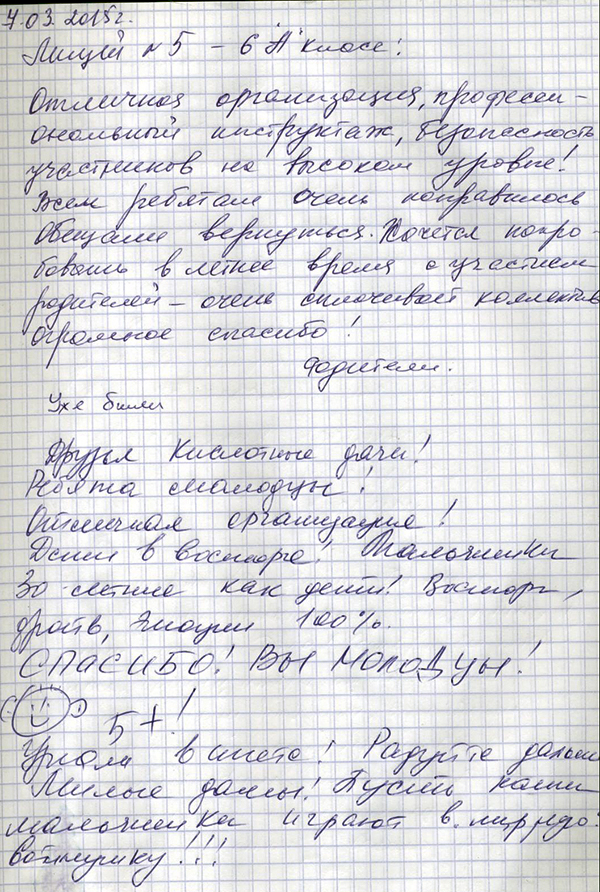 7.03.2015г.
Лицей №5 – 6 "А" класс!
Отличная организация, професси-
ональный инструктаж, безопасность
участников на высоком уровне!
Всем ребятам очень понравилось
Обещали вернуться. Хочется попро-
бовать в летнее время с участием
родителей – очень сплочивает коллектив
огромное спасибо!
Родители.
Уже были
Друзья Кислотные дачи!
Ребята молодцы!
Отличная организация!
Дети в восторге! Мальчишки
30-летние как дети! Восторг,
драйв, эмоции 100%.
СПАСИБО! ВЫ МОЛОДЦЫ!
5+!
Узнали в инете! Радуйте дальше
Милые дамы! Пусть наши
мальчишки играют в мирную
войнушку!!!